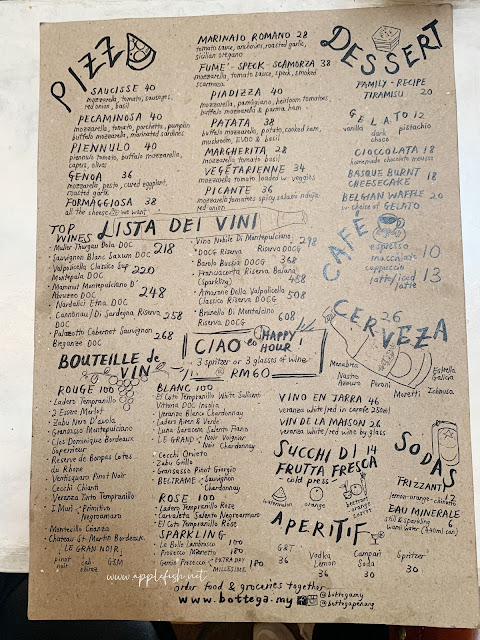 PIZZ
SAUCISSE 40
mozzarella, tomato, sausages,
red onion, basil
PECAMINOSA 40
mozzarella, tomato, porchetta, pumpkin
buffalo mozzarella, marinated sardines
PIENNULO 40
piennulo tomato, buffalo mozzarella,
capers, olives
GENOA 36
mozzarella, pesto, cured eggplant,
roasted garlic
FORMAGGIOSA 38
all the cheese we want
MARINAIO ROMANO 28
tomato sauce, anchovies, roasted garlic,
sicilian oregano
FUME' - SPECK - SCAMORZA 38
mozzarella, tomato sauce, speck, smoked
scarmoza
PIADIZZA 40
mozzarella, parmigiano, heirloom tomatoes,
buffalo mozzarella & parma ham
PATATA 38
buffalo mozzarella, potato, cooked ham,
mushroom, EVOO & basil
MARGHERITA 28
mozzarella tomato basil
VEGÉTARIENNE 34
mozzarella tomato loaded w veggies
PICANTE 36
mozzarella tomatoes spicy salami nduja
red onion
DESSERT
FAMILY - RECIPE
TIRAMISU 20
GELATO 12
vanilla dark choco pistachio
CIOCCOLATA 18
homemade chocolate mousse
BASQUE BURNT
CHEESECAKE 18
BELGIAN WAFFLE 20
w choice of GELATO
CAFÉ
espresso 10
macchiato
cappuccino 13
latte/iced
latte
TOP WINES LISTA DEI VINI
Muller Thurgau Dola DOC 218
Sauvignon Blanc Saxum DOC
Valpolicella Classico Sup 220
Montepulciano D'
Abruzzo DOC 248
Nardalici Etna DOC
Cannonau Di Sardegna Riserva 258
DOC
Palazzotto Cabernet Sauvignon 268
Breganze DOC
Vino Nobile Di Montepulciano 298
DOCG Riserva Riserva DOCG
Barolo Bussia DOCG 368
Franciacorta Riserva 488
(Sparkling)
Amarone Della Valpolicella
Classico Riserva DOCG 508
Brunello Di Montalcino
Riserva DOCG 608
CIAO HAPPY
HOUR!
3 spritzer or 3 glasses of wine
RM60
CERVEZA
26
Menabrea
Nastro
Azzurro
Peroni
Moretti
Ichnusa
Estrella
Galicia
BOUTEILLE de VIN
ROUGE 100
Ladero Tempranillo
2 Essere Merlot
Zabu Nero D'avola
Gransasso Montepulciano
Clos Dominique Bordeaux
Superieur
Reserve de Bonpas Cotes
du Rhone
Vertisquero Pinot Noir
Cecchi Chianti
Veranza Tinto Tempranillo
I Muri Primitivo
Negroamaro
Montecillo Crianza
Chateau St Martin Bordeaux
LE GRAN NOIR
pinot noir GSM
BLANC 100
El Coto Tempranillo White
Vittoria DOC Inzolia
Veranza Blanco Chardonnay
Ladero Airen & Verde
Luna Saracena Salento Fiano
LE GRAND Noir Viognier
Noir Chardonnay
Cecchi Orvieto
Zabu Grillo
Gransasso Pinot Giorgio
BELTRAME Sauvignon
Chardonnay
ROSE 100
Ladero Tempranillo Rose
Carvaleta Salento Negroamaro
El Coto Tempranillo Rose
SPARKLING
La Bolla Lambrusco 100
Prosecco 180
Gemin Prosecco EXTRA DRY 180
MILLESIME
VINO EN JARRA 46
veranza white/red in carafe 250ml
VIN DE LA MAISON 26
veranza white/red wine by glass
SUCCHI DI 14
FRUTTA FRESCA
cold press
watermelon
orange
SODAS
FRIZZANTI 12
lemon-orange-chinotto
EAU MINERALE
still & sparkling 6
warm water (440ml can)
APERITIF
G&T
36
Vodka
Lemon
36
Campari
Soda
30
Spritzer
30
www.applefish.net
order food & groceries together
www.bottega.my
@bottegamy
@bottegapenang